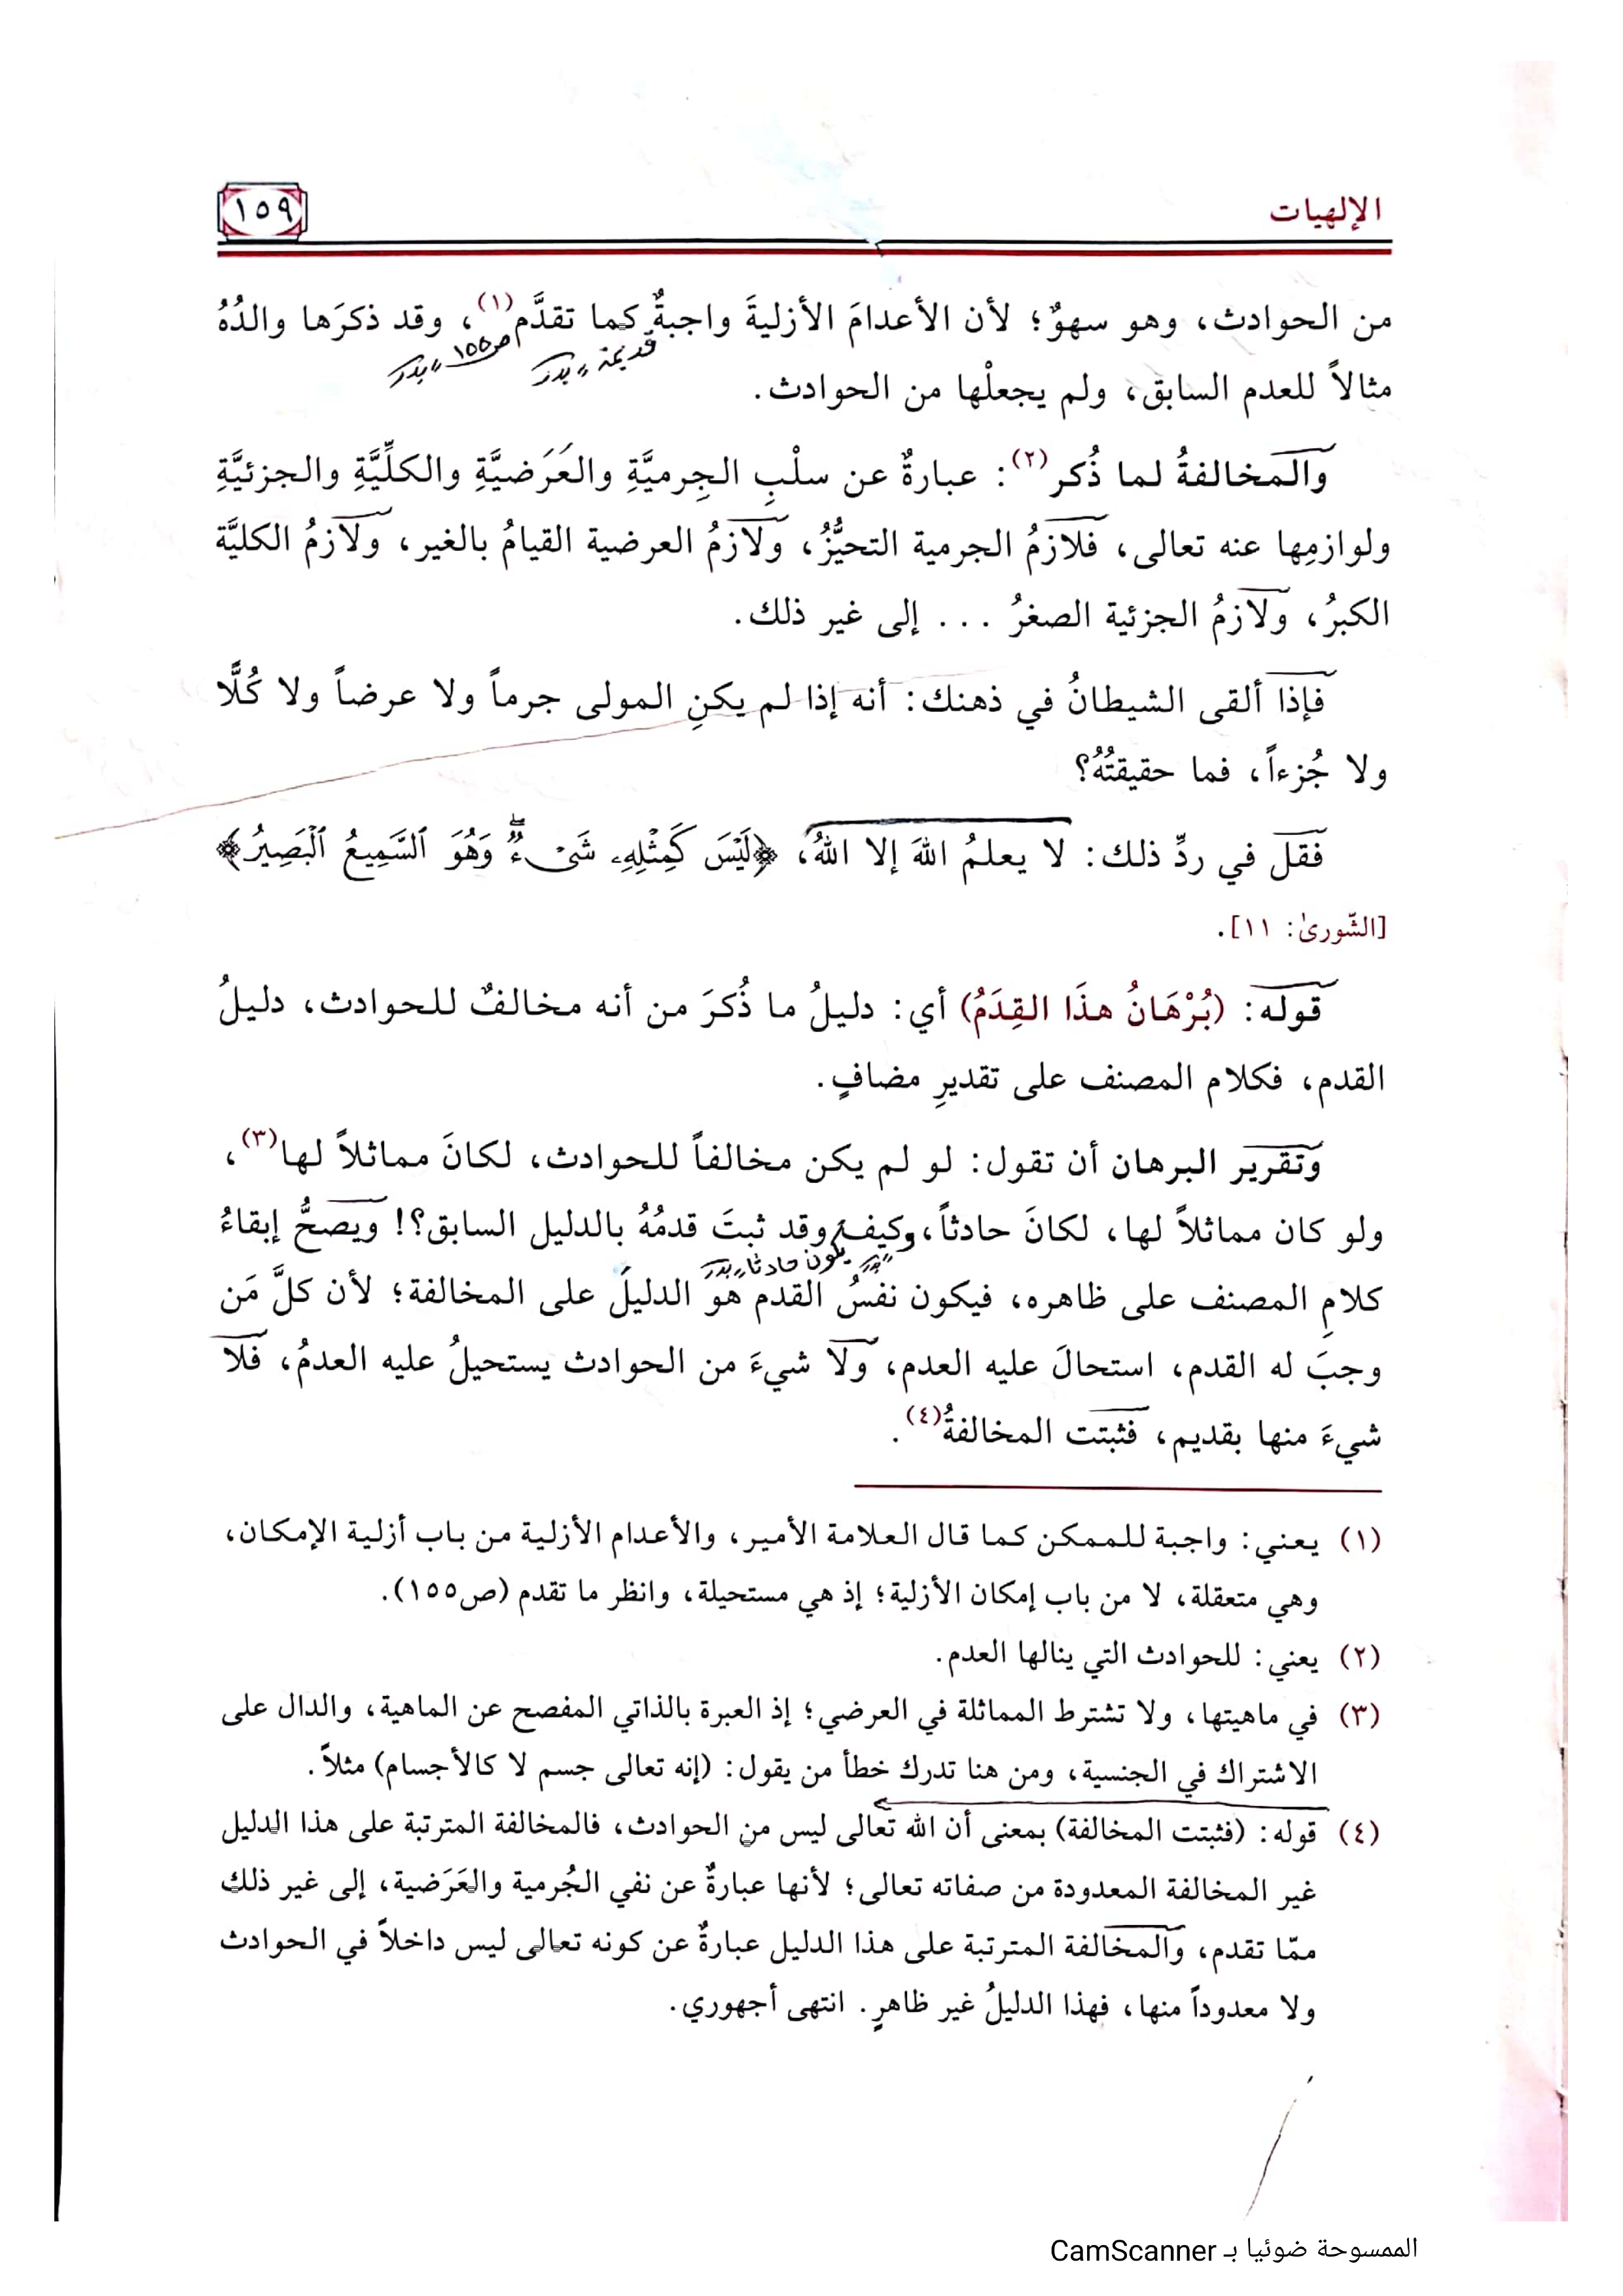 الإلهيات
١٥٩
من الحوادث، وهو سهوٌ؛ لأن الأعدامَ الأزليةَ واجبةٌ كما تقدَّم(١)، وقد ذكرَها والدُهُ
قديمة " بدر
ص١٥٥ " بدر
مثالاً للعدم السابق، ولم يجعلْها من الحوادث.
والمخالفةُ لما ذُكر(٢): عبارةٌ عن سلْبِ الجِرميَّةِ والعَرَضيَّةِ والكلِّيَّةِ والجزئيَّةِ
ولوازمِها عنه تعالى، فلازمُ الجرمية التحيُّزُ، ولازمُ العرضية القيامُ بالغير، ولازمُ الكليَّة
الكبرُ، ولازمُ الجزئية الصغرُ ... إلى غير ذلك.
فإذا ألقى الشيطانُ في ذهنك: أنه إذا لم يكنِ المولى جرماً ولا عرضاً ولا كُلًّا
ولا جُزءاً، فما حقيقتُهُ؟
فقلَ في ردِّ ذلك: لا يعلمُ اللهَ إلا اللهُ، ﴿لَيْسَ كَمِثْلِهِۦ شَىْءٌۖ وَهُوَ ٱلسَّمِيعُ ٱلْبَصِيرُ﴾
[الشّورىٰ: ١١].
قوله: (بُرْهَانُ هذَا القِدَمُ) أي: دليلُ ما ذُكرَ من أنه مخالفٌ للحوادث، دليلُ
القدم، فكلام المصنف على تقديرِ مضافٍ.
وتقرير البرهان أن تقول: لو لم يكن مخالفاً للحوادث، لكانَ مماثلاً لها(٣)،
ولو كان مماثلاً لها، لكانَ حادثاً، وكيف وقد ثبتَ قدمُهُ بالدليل السابق؟! ويصحُّ إبقاءُ
يكون حادثا " بدر
كلامِ المصنف على ظاهره، فيكون نفسُ القدم هو الدليلَ على المخالفة؛ لأن كلَّ مَن
وجبَ له القدم، استحالَ عليه العدم، ولا شيءَ من الحوادث يستحيلُ عليه العدمُ، فلا
شيءَ منها بقديم، فثبتت المخالفةُ(٤).
(١) يعني: واجبة للممكن كما قال العلامة الأمير، والأعدام الأزلية من باب أزلية الإمكان،
وهي متعقلة، لا من باب إمكان الأزلية؛ إذ هي مستحيلة، وانظر ما تقدم (ص١٥٥).
(٢) يعني: للحوادث التي ينالها العدم.
(٣) في ماهيتها، ولا تشترط المماثلة في العرضي؛ إذ العبرة بالذاتي المفصح عن الماهية، والدال على
الاشتراك في الجنسية، ومن هنا تدرك خطأ من يقول: (إنه تعالى جسم لا كالأجسام) مثلاً.
(٤) قوله: (فثبتت المخالفة) بمعنى أن الله تعالى ليس من الحوادث، فالمخالفة المترتبة على هذا الدليل
غير المخالفة المعدودة من صفاته تعالى؛ لأنها عبارةٌ عن نفي الجُرمية والعَرَضية، إلى غير ذلك
ممّا تقدم، والمخالفة المترتبة على هذا الدليل عبارةٌ عن كونه تعالى ليس داخلاً في الحوادث
ولا معدوداً منها، فهذا الدليلُ غير ظاهرٍ. انتهى أجهوري.
الممسوحة ضوئيا بـ CamScanner